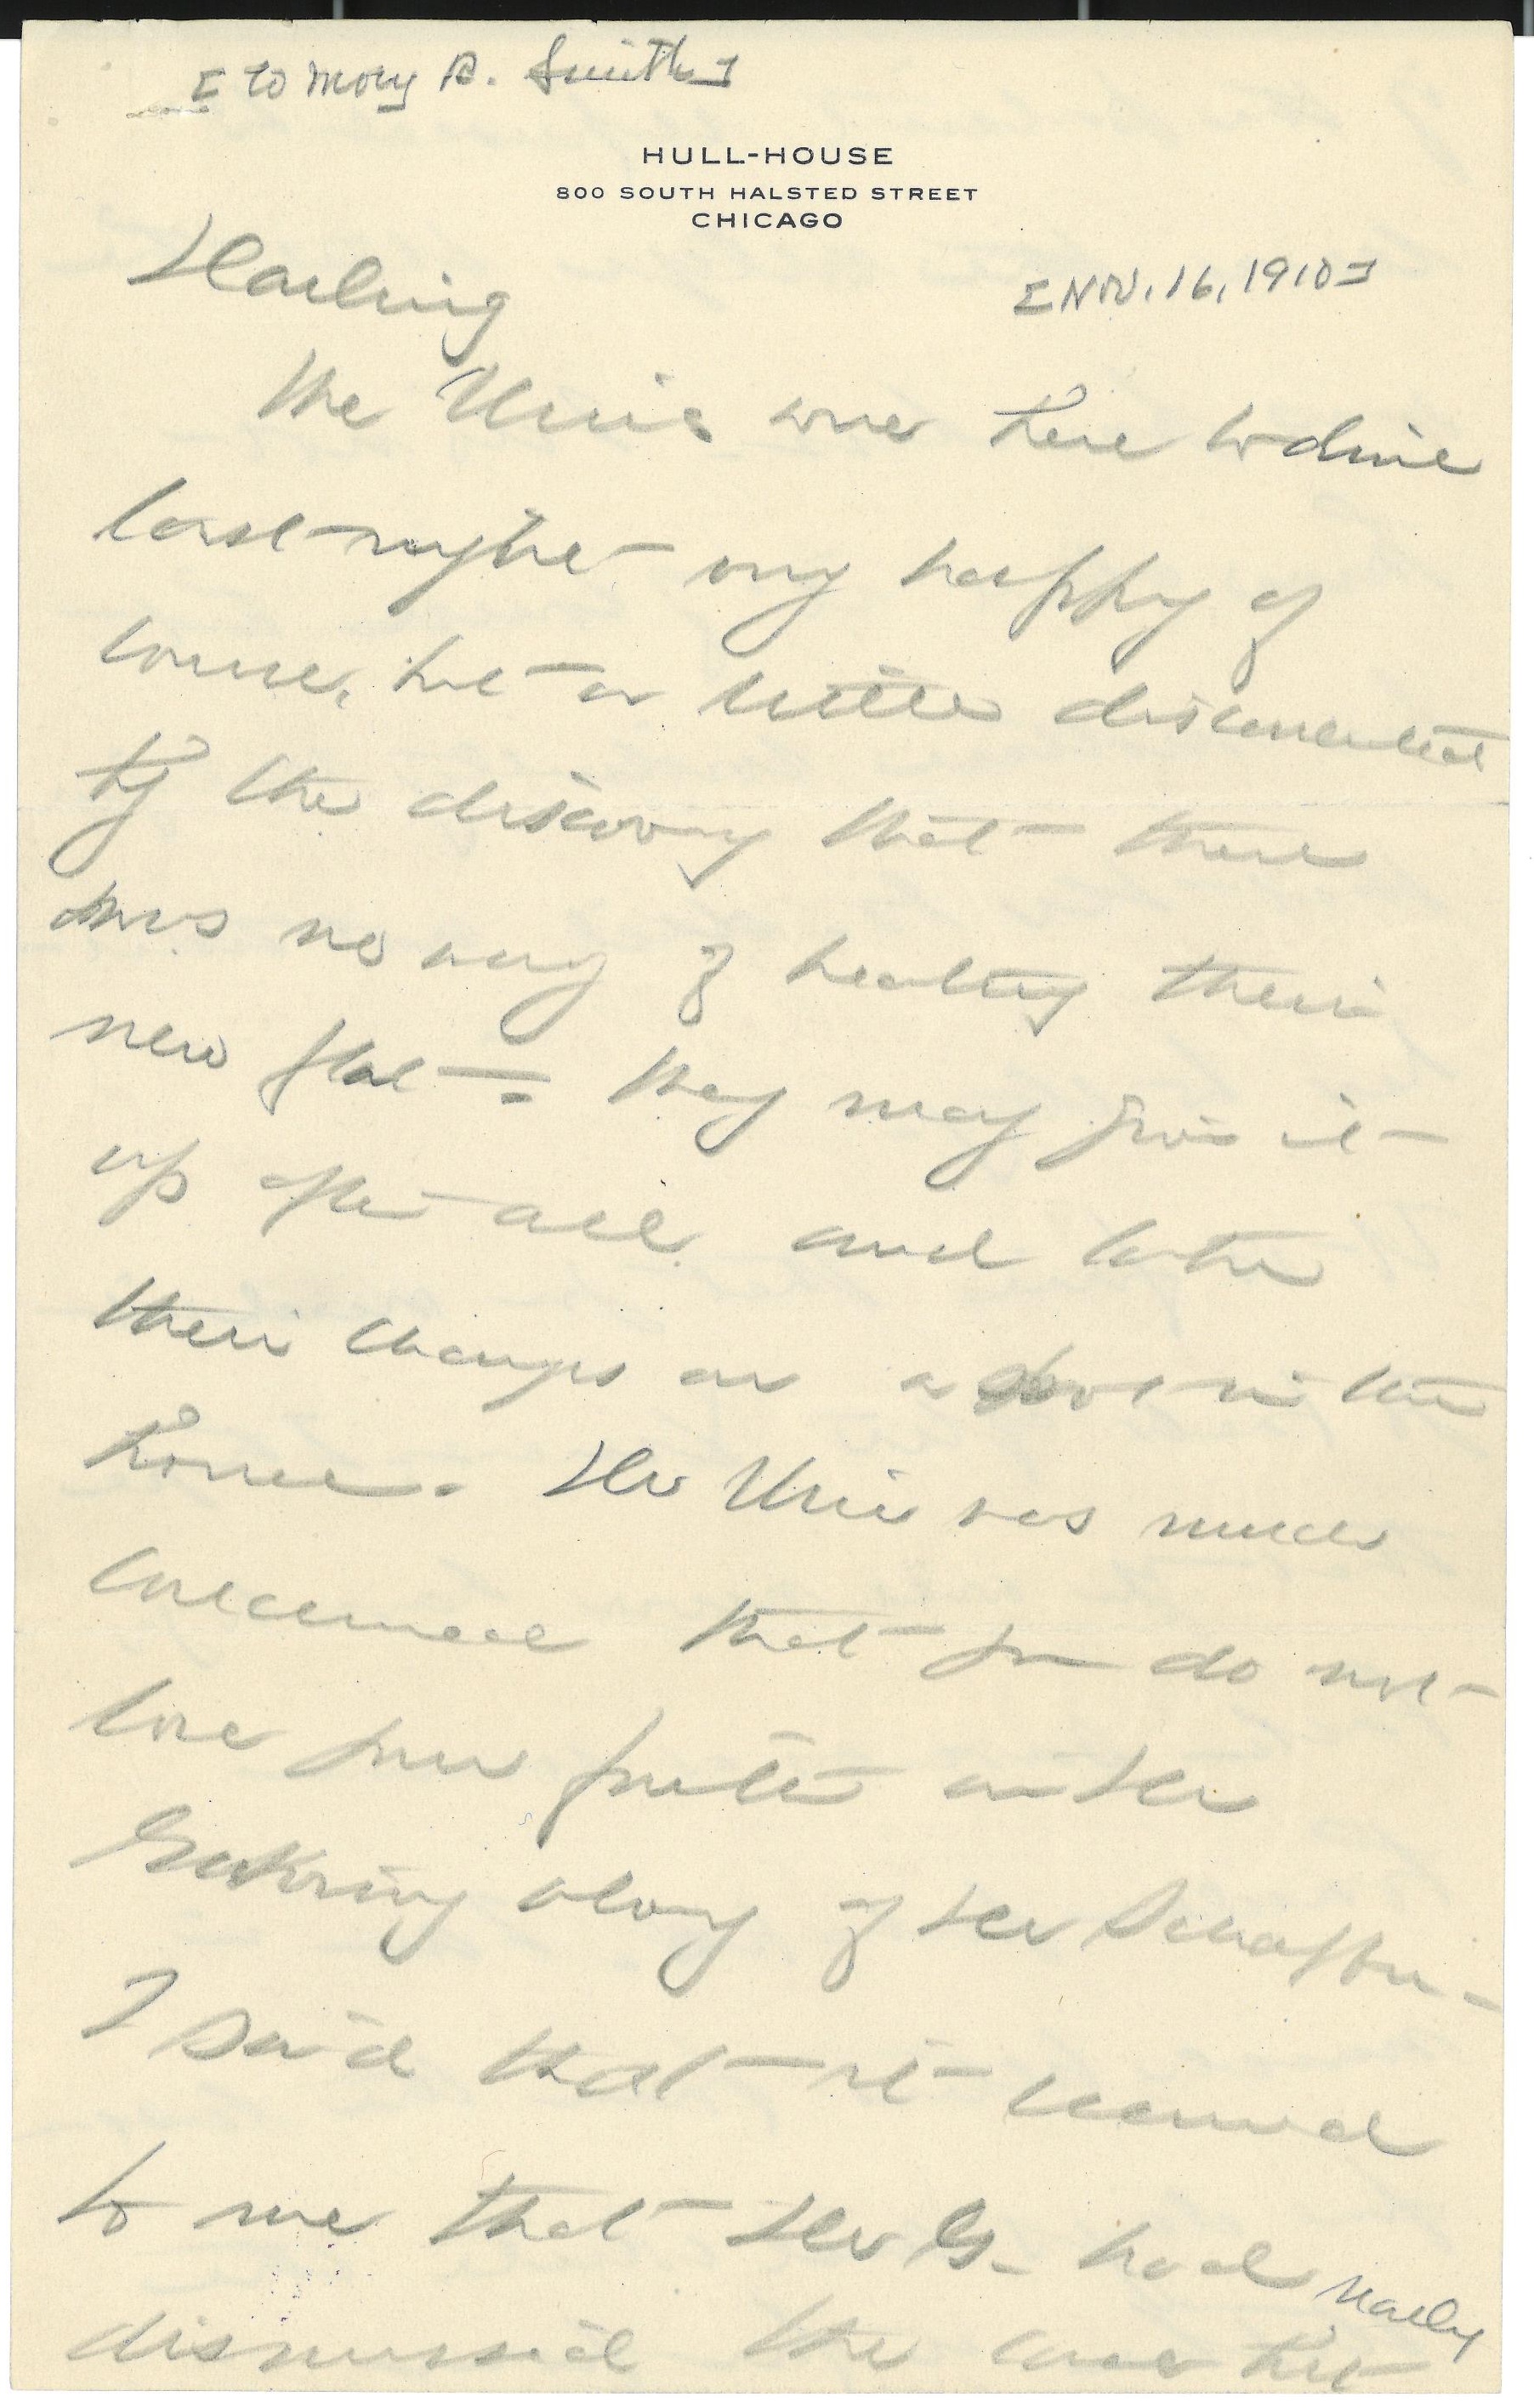 [to Mary R. Smith]
HULL-HOUSE
800 SOUTH HALSTED STREET
CHICAGO
[NOV. 16, 1910]
Darling
The were here to dine
last night very happy of
course, but a little disconcerted
by the discovery that there
was no way of heating their
new flat – they may give it
up after all and take
their changes as a in the
house. Dr was much
concerned that you do not
lose your faith in Dr
along of Dr
I said that it seemed
to me that Dr G. had nearly
dismissed the case but